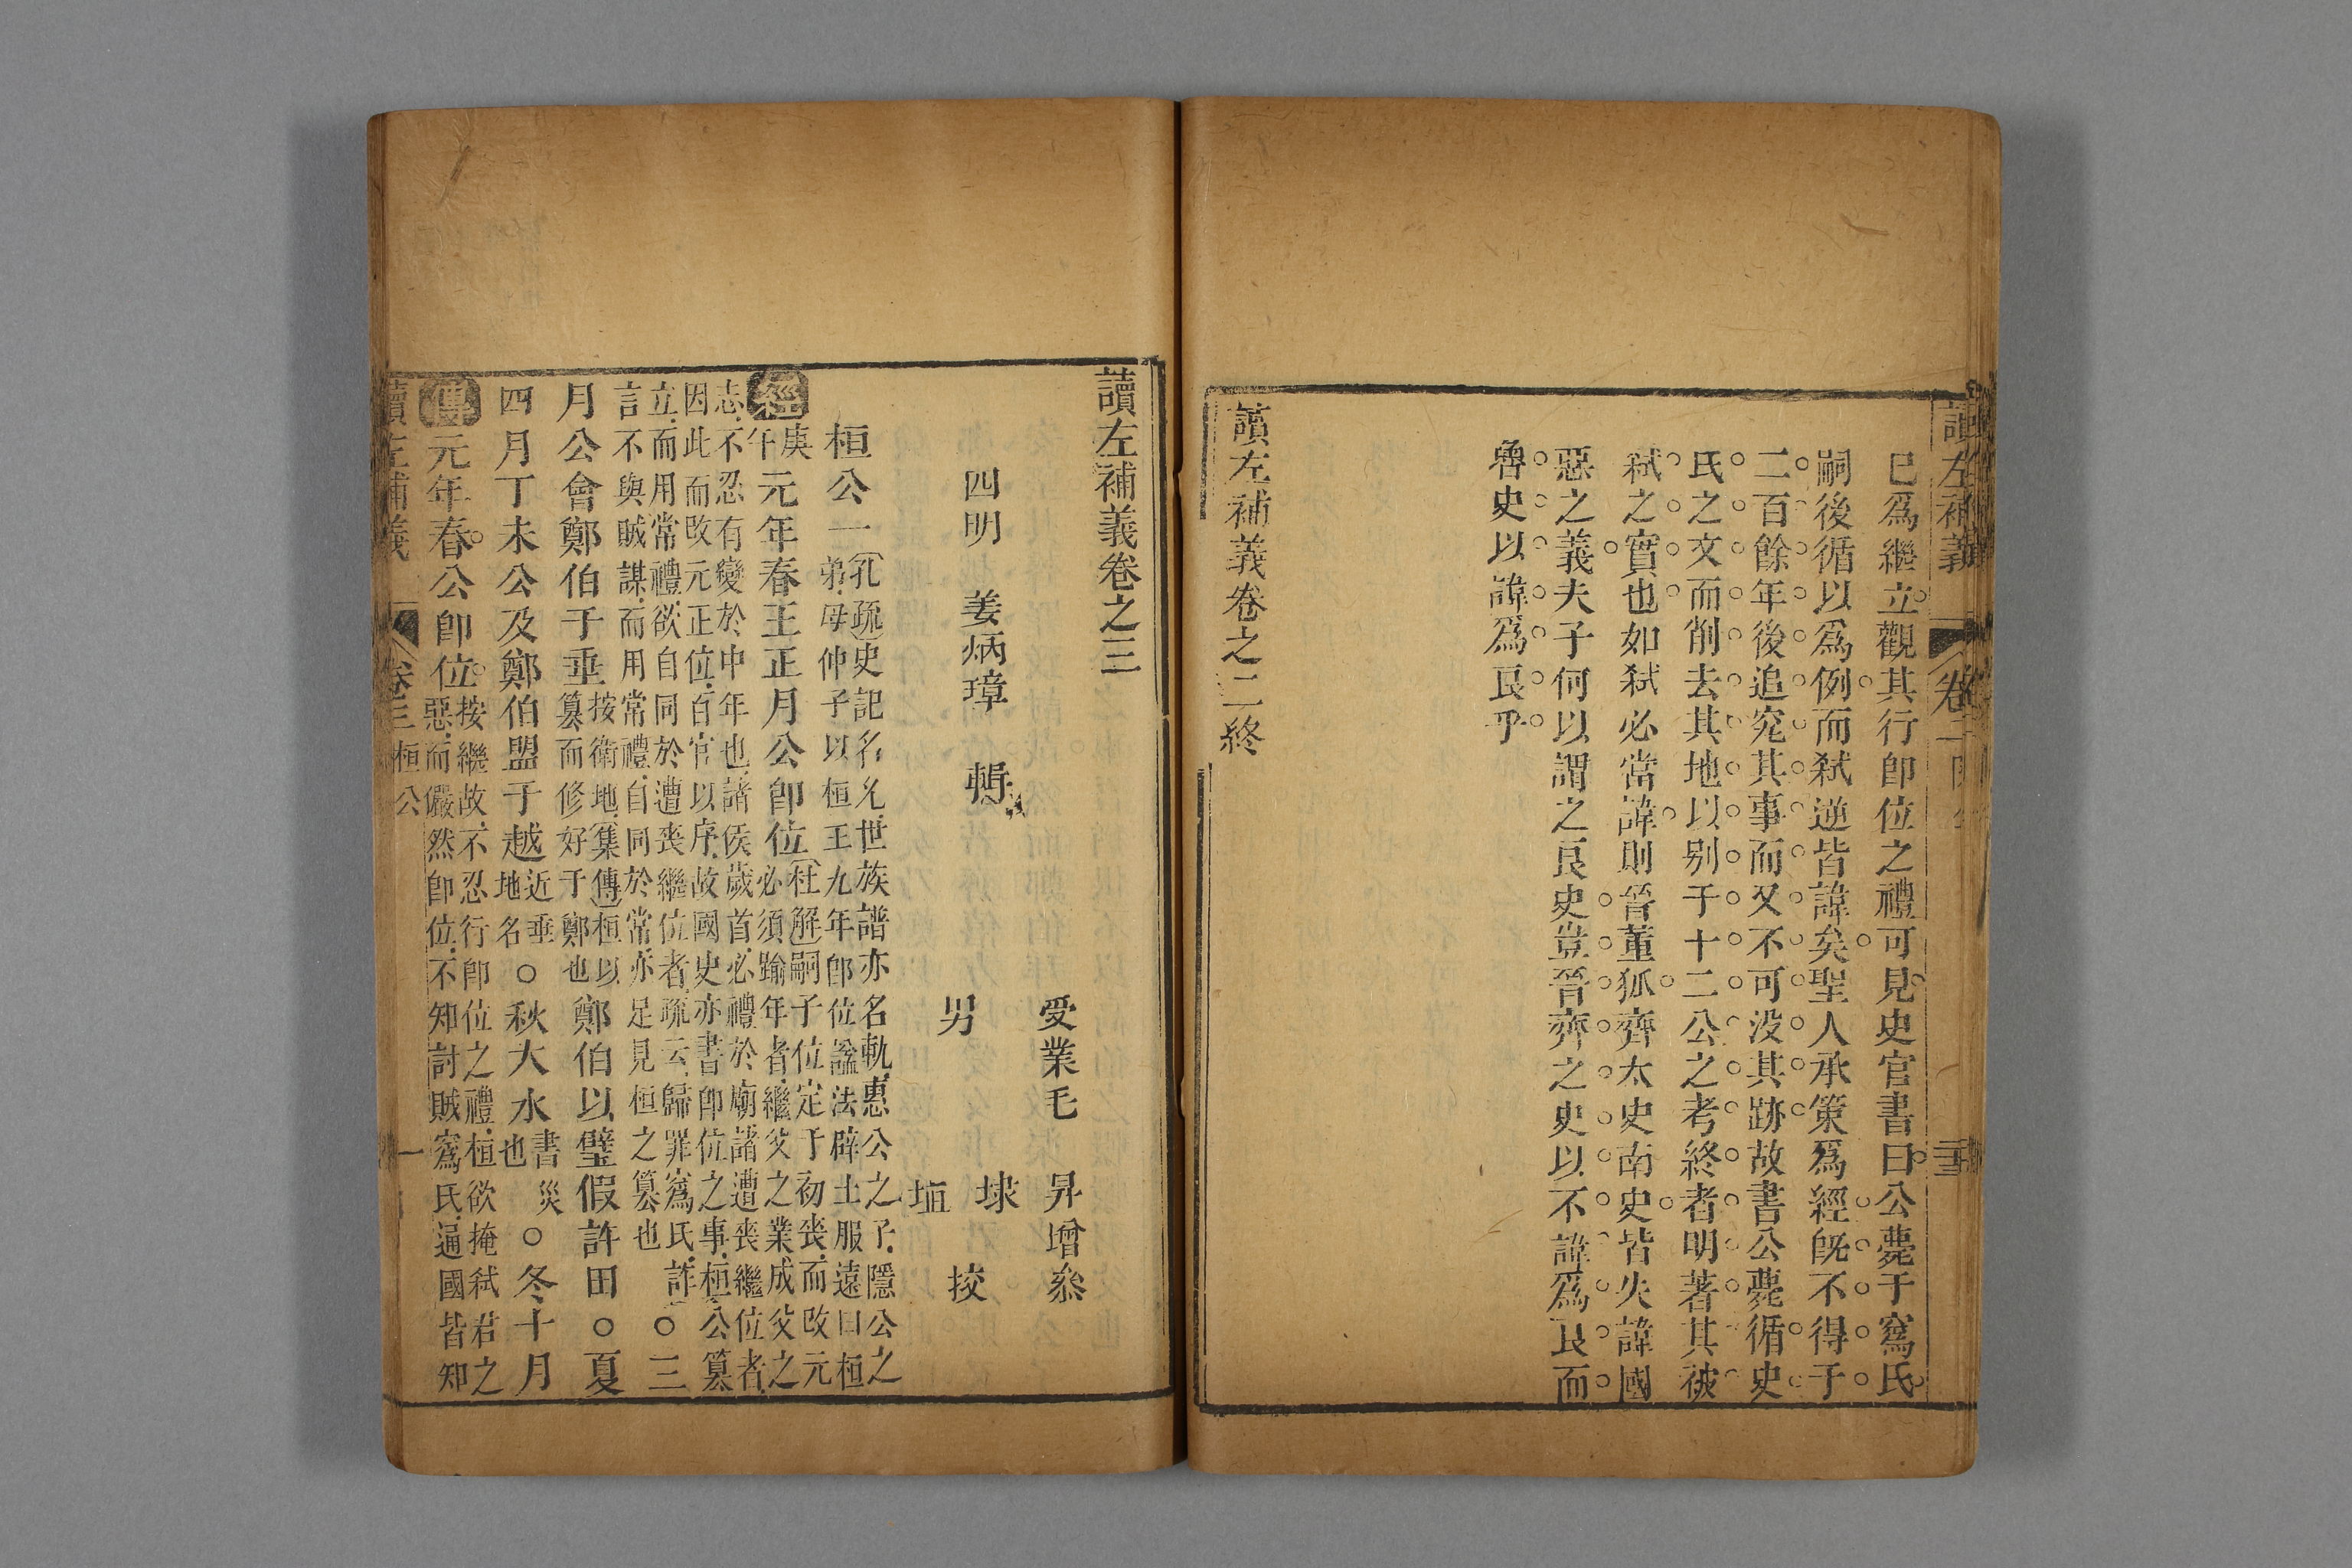 讀左補義
卷二
已爲繼立觀其行卽位之禮可見史官書曰公薨于寪氏
嗣後循以爲例而弑逆皆諱矣聖人承策爲經旣不得于
二百餘年後追究其事而又不可没其跡故書公薨循史
氏之文而削去其地以别于十二公之考終者明著其被
弑之實也如弑必當諱則晉董狐齊太史南史皆失諱國
惡之義夫子何以謂之良史豈晉齊之史以不諱爲良而
魯史以諱爲良乎
讀左補義卷之二終
讀左補義卷之三
受業毛昇增叅
四明 姜炳璋 輯
男 埭 垣 挍
桓公一
孔疏史記名允世族譜亦名軌惠公之子隱公之
弟母仲子以桓王九年卽位諡法辟土服遠曰桓
經
庚午
元年春王正月公卽位
杜解嗣子位定于初喪而改元
必須踰年者繼父之業成父之
志不忍有變於中年也諸侯歲首必禮於廟諸遭喪繼位者
因此而改元正位百官以序故國史亦書卽位之事桓公篡
立而用常禮欲自同於遭喪繼位者疏云歸罪寪氏詐
言不與賊謀而用常禮自同於常亦足見桓之篡也
○三
月公會鄭伯于垂
按衛地集傳桓以
篡而修好于鄭也
鄭伯以璧假許田○夏
四月丁未公及鄭伯盟于越
近垂
地名
○秋大水
書災
也
○冬十月
傳
元年春公卽位
按繼故不忍行卽位之禮桓欲掩弑君之
惡而儼然卽位不知討賊寪氏通國皆知
讀左補義
卷三
桓公
一